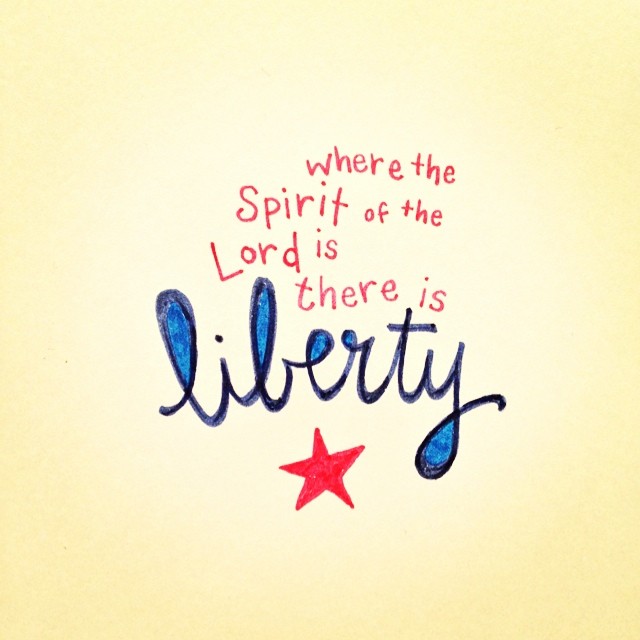 where the
Spirit of the
Lord is
there is
liberty